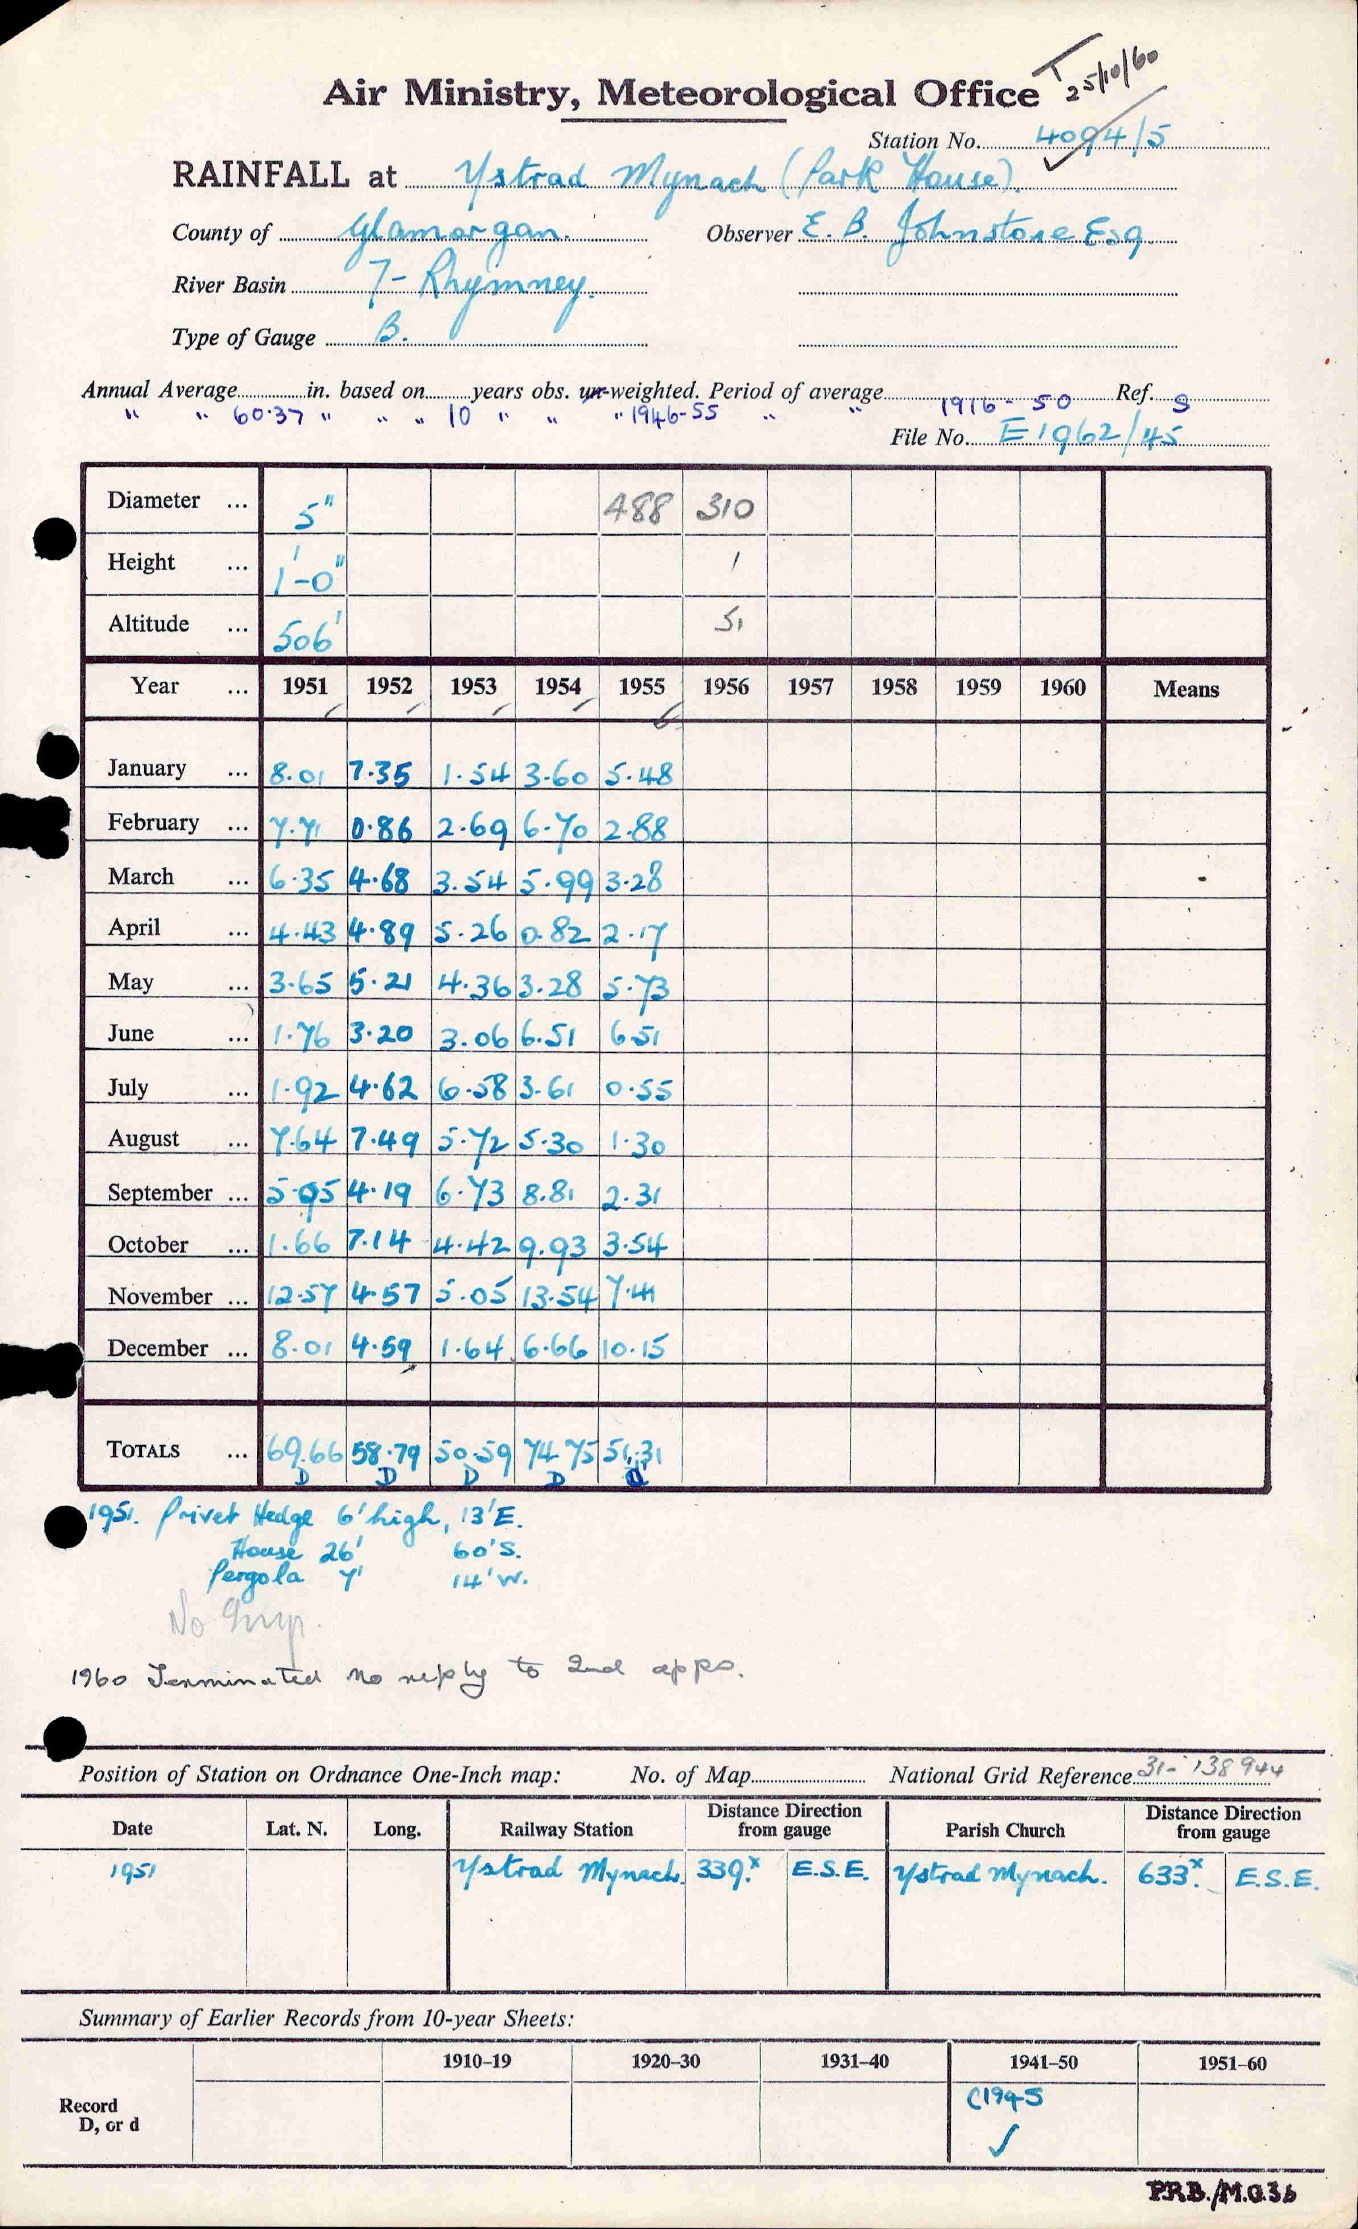 T 25/10/60
Air Ministry, Meteorological Office
Station No. 4094/5
RAINFALL at Ystrad Mynach (Park House).
County of Glamorgan. Observer E. B. Johnstone Esq.
River Basin 7- Rhymney.
Type of Gauge B.
Annual Average in. based on years obs. un-weighted. Period of average 1916-50 Ref. S
" " 60.37 " " " 10 " " " 1946-55 " "
File No. E1962/45
Diameter ... 5" 488 310
Height ... 1'-0" 1
Altitude ... 506' 51
Year ... 1951 1952 1953 1954 1955 1956 1957 1958 1959 1960 Means
January ... 8.01 7.35 1.54 3.60 5.48
February ... 7.71 0.86 2.69 6.70 2.88
March ... 6.35 4.68 3.54 5.99 3.28
April ... 4.43 4.89 5.26 0.82 2.17
May ... 3.65 5.21 4.36 3.28 5.73
June ... 1.76 3.20 3.06 6.51 6.51
July ... 1.92 4.62 6.58 3.61 0.55
August ... 7.64 7.49 5.72 5.30 1.30
September ... 5.95 4.19 6.73 8.81 2.31
October ... 1.66 7.14 4.42 9.93 3.54
November ... 12.57 4.57 5.05 13.54 7.41
December ... 8.01 4.59 1.64 6.66 10.15
TOTALS ... 69.66 58.79 50.59 74.75 51.31
D D D D d
1951. Privet Hedge 6' high, 13' E.
House 26' 60' S.
Pergola 7' 14' W.
No
1960 Terminated no reply to 2nd apps.
Position of Station on Ordnance One-Inch map: No. of Map National Grid Reference 31- 138944
Date Lat. N. Long. Railway Station Distance Direction from gauge Parish Church Distance Direction from gauge
1951 Ystrad Mynach. 339.x E.S.E. Ystrad Mynach. 633.x E.S.E.
Summary of Earlier Records from 10-year Sheets:
1910–19 1920–30 1931–40 1941–50 1951–60
Record D, or d C1945 ✓
P.R.B./M.O.36